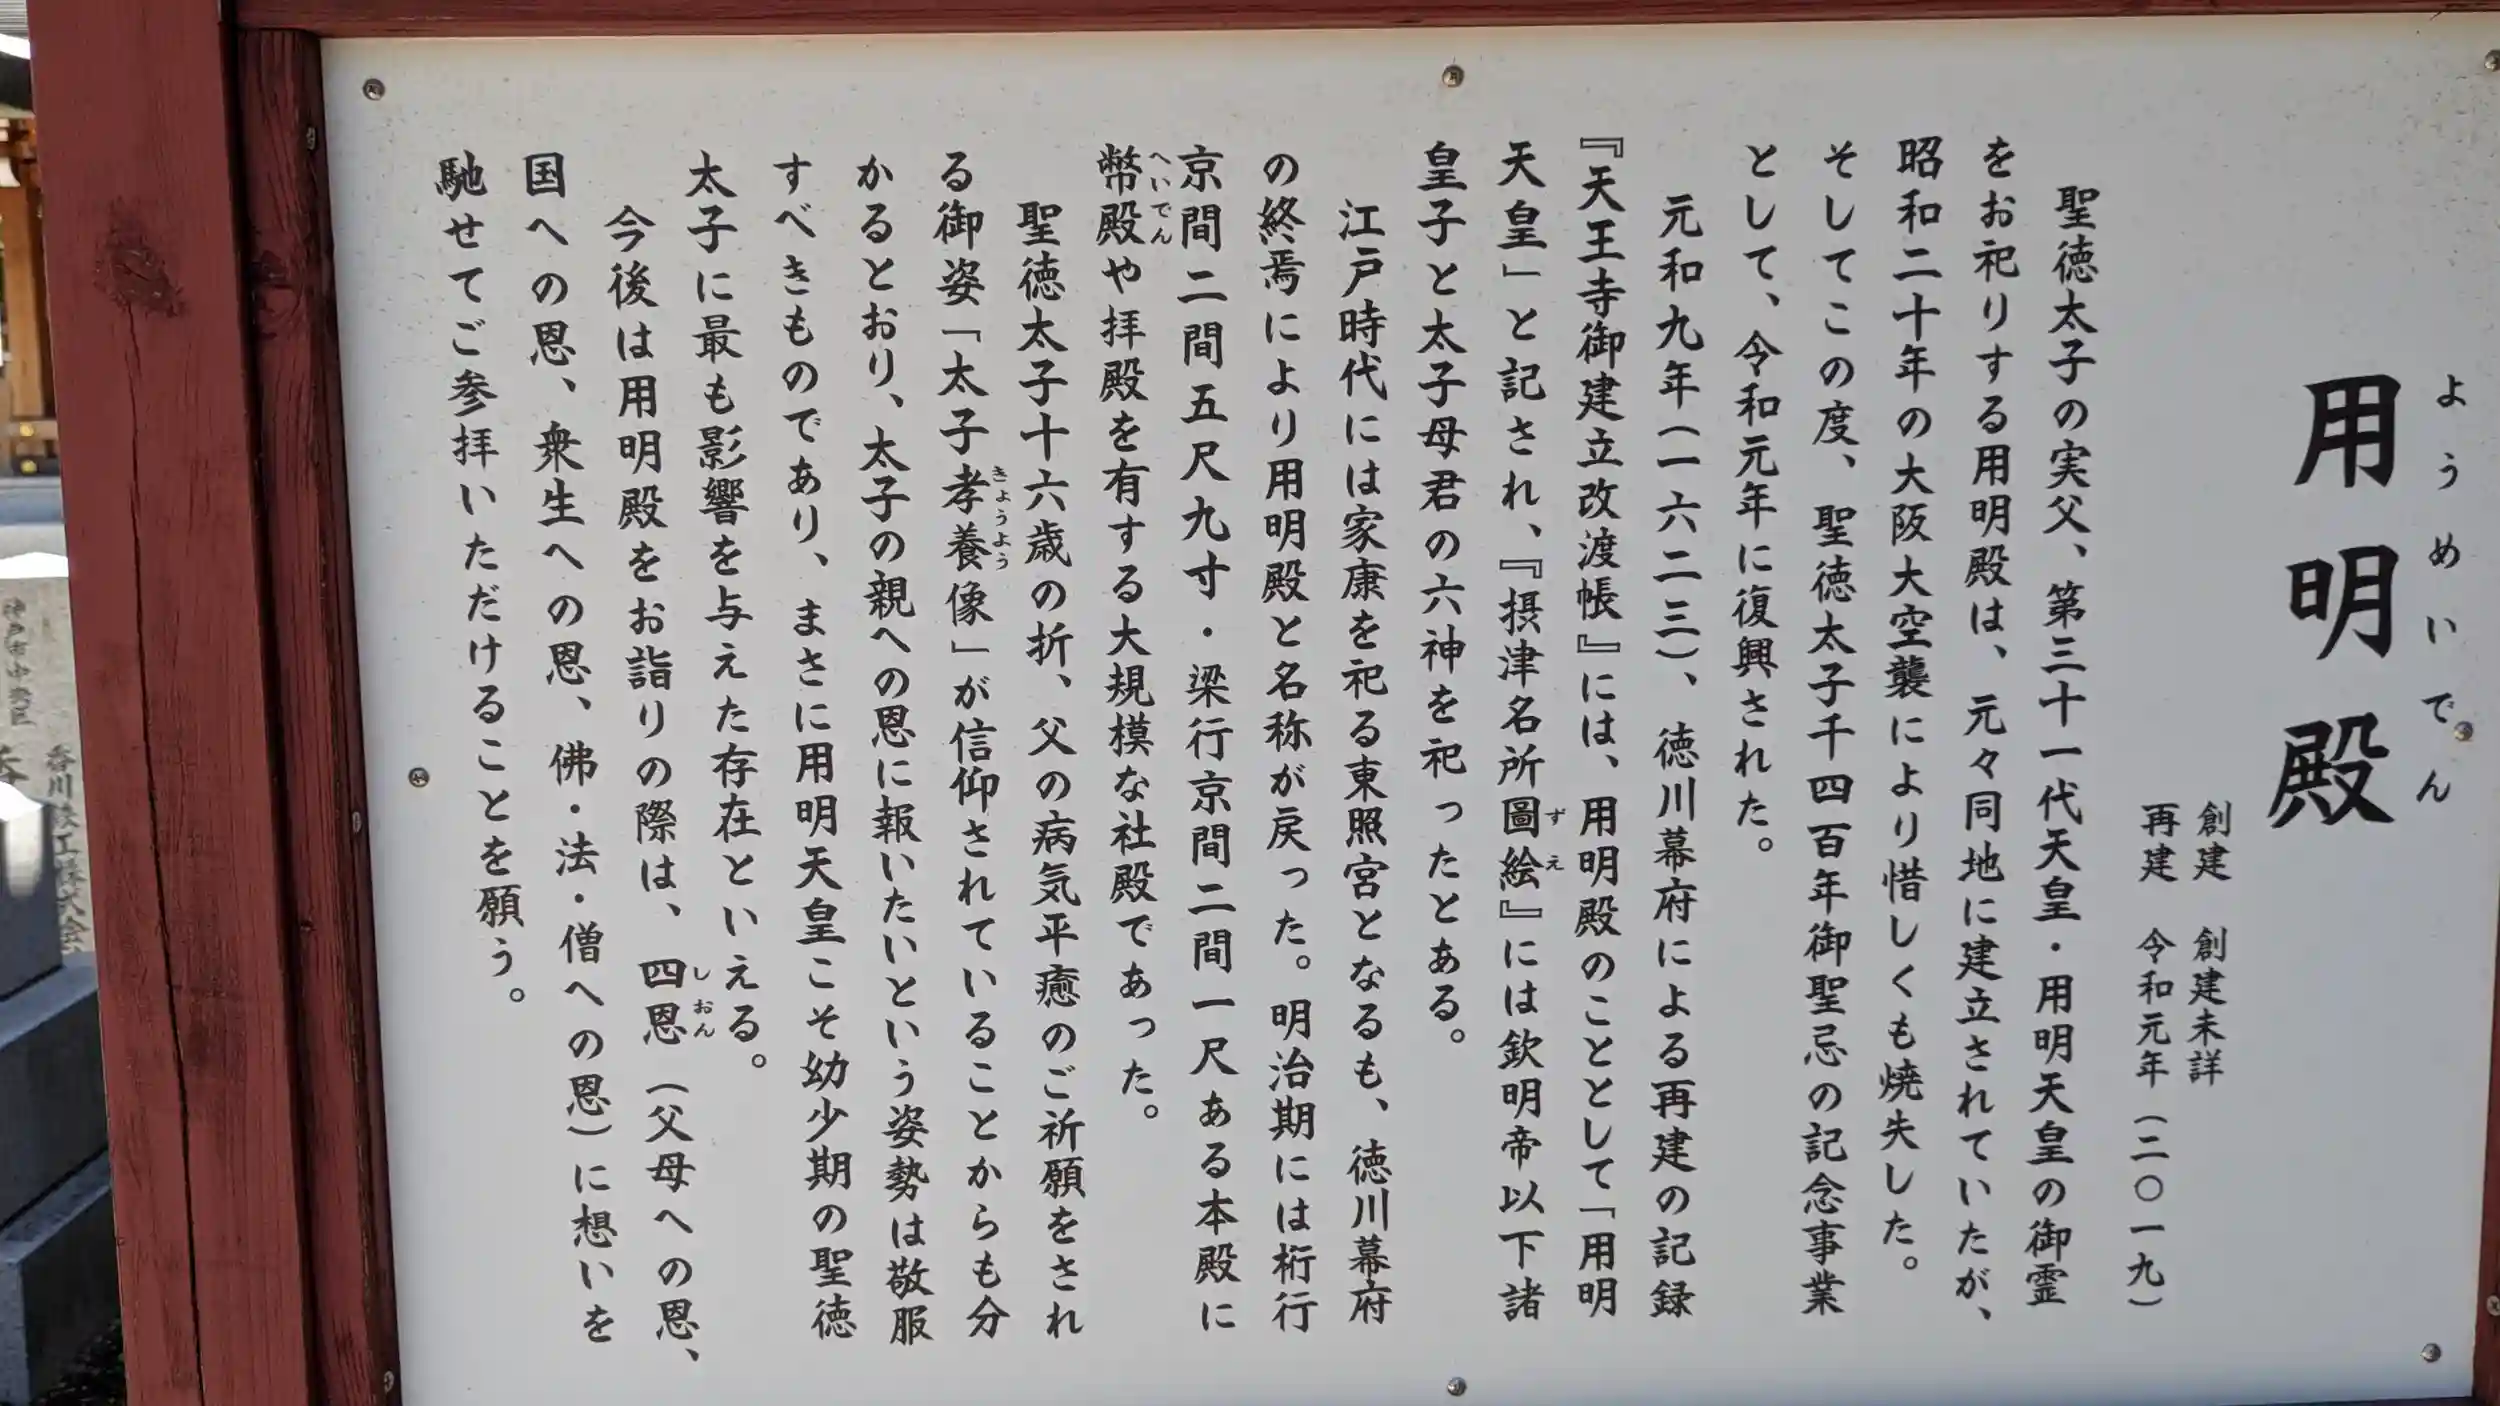 用明殿
ようめいでん
創建　創建未詳
再建　令和元年（二〇一九）
聖徳太子の実父、第三十一代天皇・用明天皇の御霊
をお祀りする用明殿は、元々同地に建立されていたが、
昭和二十年の大阪大空襲により惜しくも焼失した。
そしてこの度、聖徳太子千四百年御聖忌の記念事業
として、令和元年に復興された。
元和九年（一六二三）、徳川幕府による再建の記録
『天王寺御建立改渡帳』には、用明殿のこととして「用明
天皇」と記され、『摂津名所圖絵』には欽明帝以下諸
ずえ
皇子と太子母君の六神を祀ったとある。
江戸時代には家康を祀る東照宮となるも、徳川幕府
の終焉により用明殿と名称が戻った。明治期には桁行
京間二間五尺九寸・梁行京間二間一尺ある本殿に
幣殿や拝殿を有する大規模な社殿であった。
へいでん
聖徳太子十六歳の折、父の病気平癒のご祈願をされ
る御姿「太子孝養像」が信仰されていることからも分
きょうよう
かるとおり、太子の親への恩に報いたいという姿勢は敬服
すべきものであり、まさに用明天皇こそ幼少期の聖徳
太子に最も影響を与えた存在といえる。
今後は用明殿をお詣りの際は、四恩（父母への恩、
しおん
国への恩、衆生への恩、佛・法・僧への恩）に想いを
馳せてご参拝いただけることを願う。
神戸市中央区
香川鉄工株式会